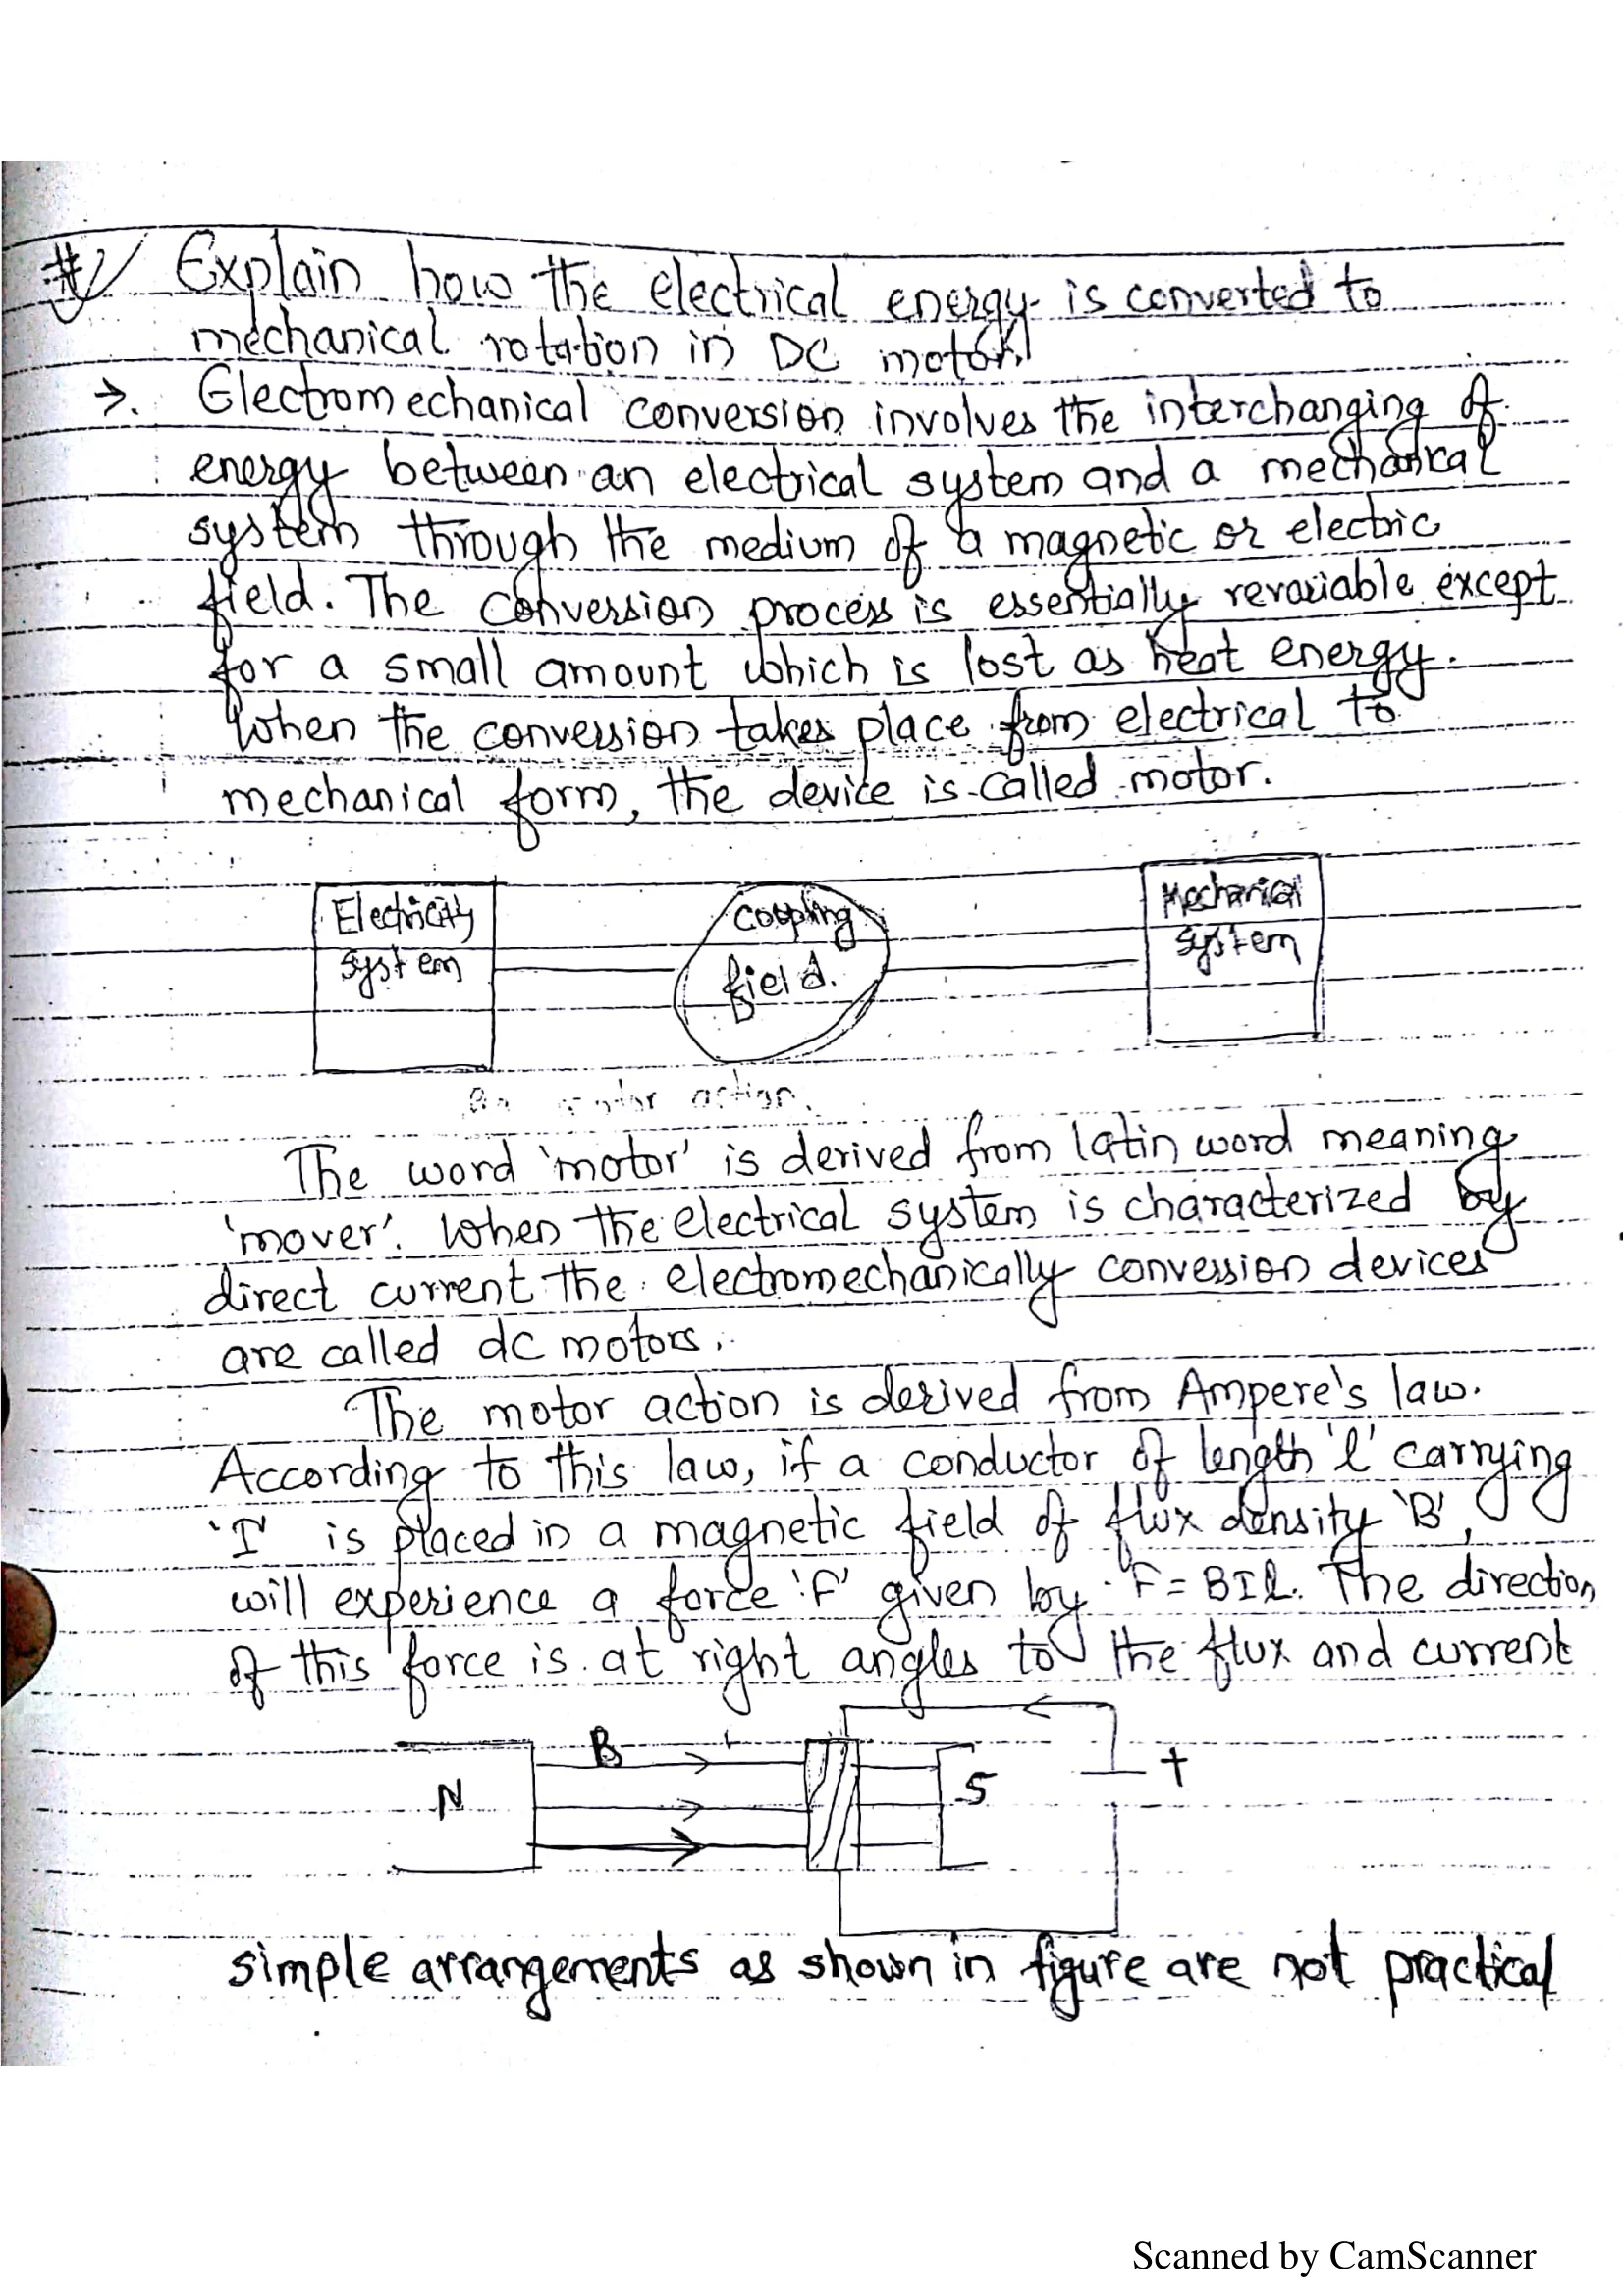 #) Explain how the electrical energy is converted to
mechanical rotation in DC motor.
→. Electromechanical conversion involves the interchanging of
energy between an electrical system and a mechanical
system through the medium of a magnetic or electric
field. The conversion process is essentially revariable except
for a small amount which is lost as heat energy.
When the conversion takes place from electrical to
mechanical form, the device is called motor.
Electricity
system
Coupling
field.
Mechanical
system
motor action.
The word 'motor' is derived from latin word meaning
'mover'. When the electrical system is characterized by
direct current the electromechanically conversion devices
are called dc motors.
The motor action is derived from Ampere's law.
According to this law, if a conductor of length 'l' carrying
'I' is placed in a magnetic field of flux density 'B',
will experience a force 'F' given by F = BIl. The direction
of this force is at right angles to the flux and current
N
B
S
+
simple arrangements as shown in figure are not practical
Scanned by CamScanner